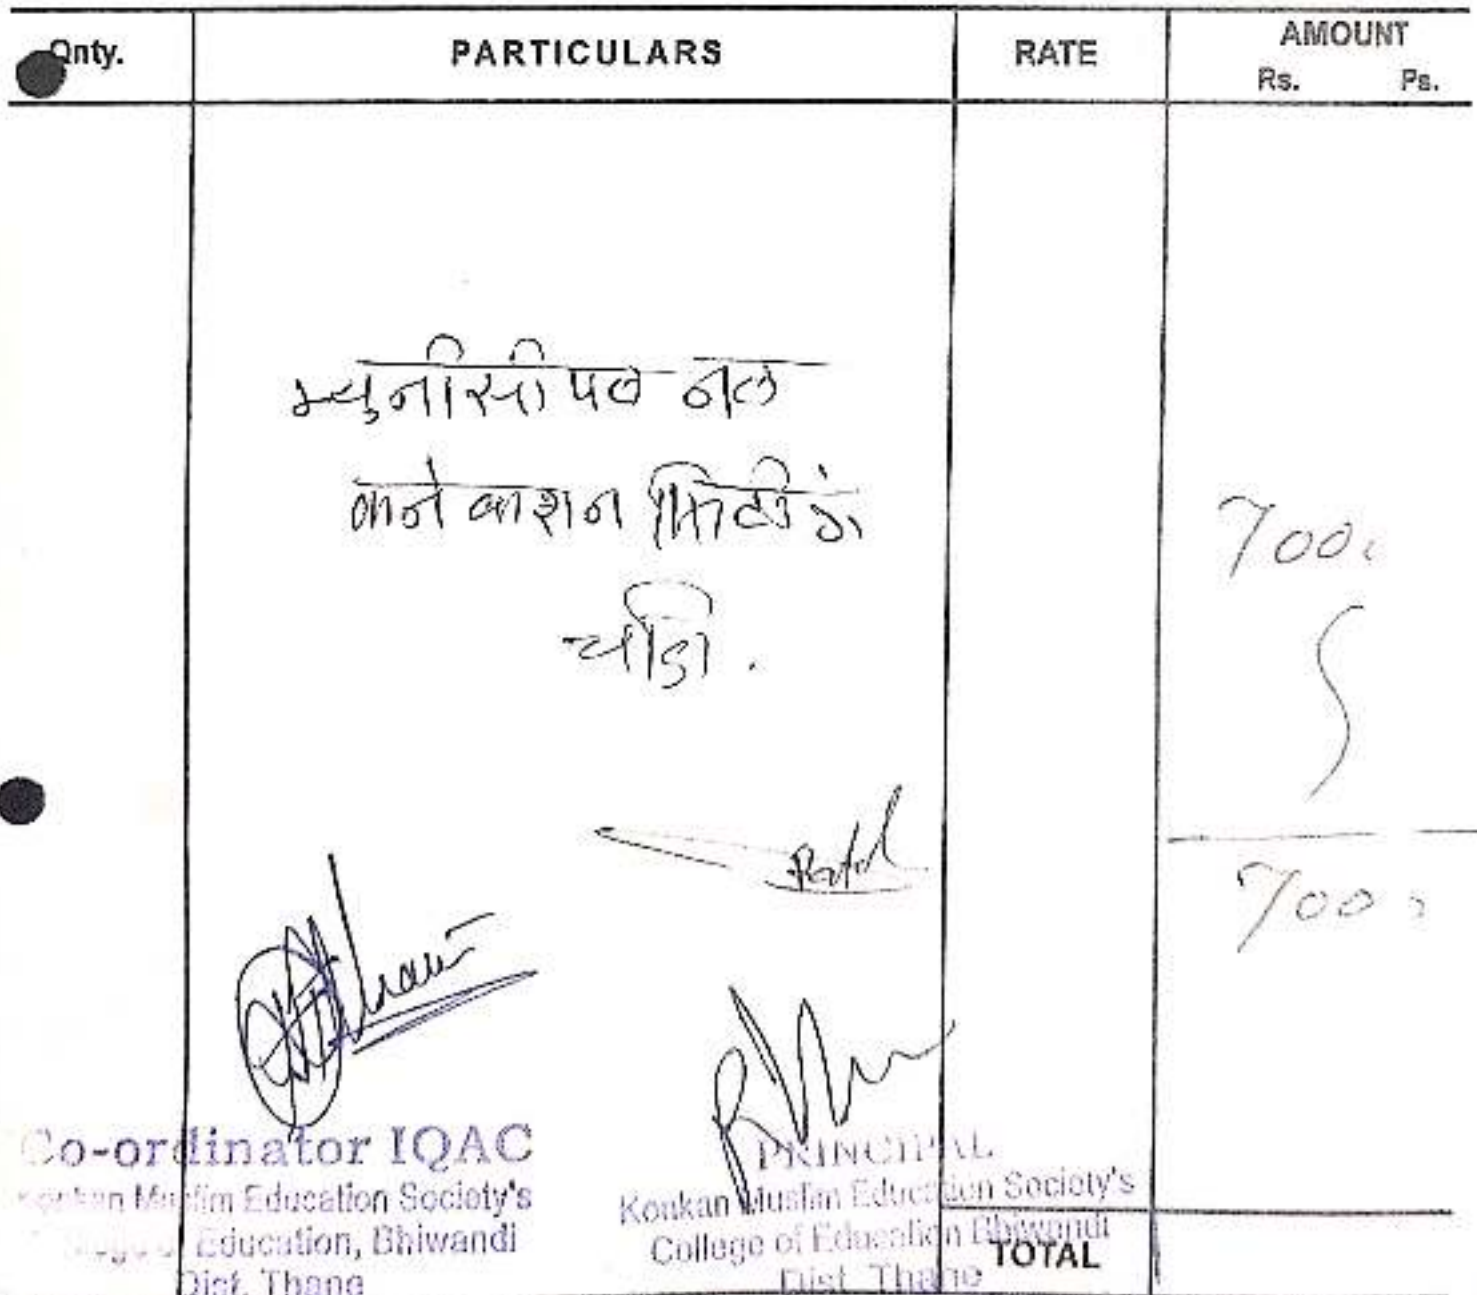 Qnty. PARTICULARS RATE AMOUNT
Rs. Ps.
म्युनीसीपल नल
कनेकाशन फिटींग
700
700
Co-ordinator IQAC
Konkan Muslim Education Society's
Education, Bhiwandi
Dist. Thane
PRINCIPAL
Konkan Muslim Education Society's
College of Education Bhiwandi
Dist. Thane
TOTAL